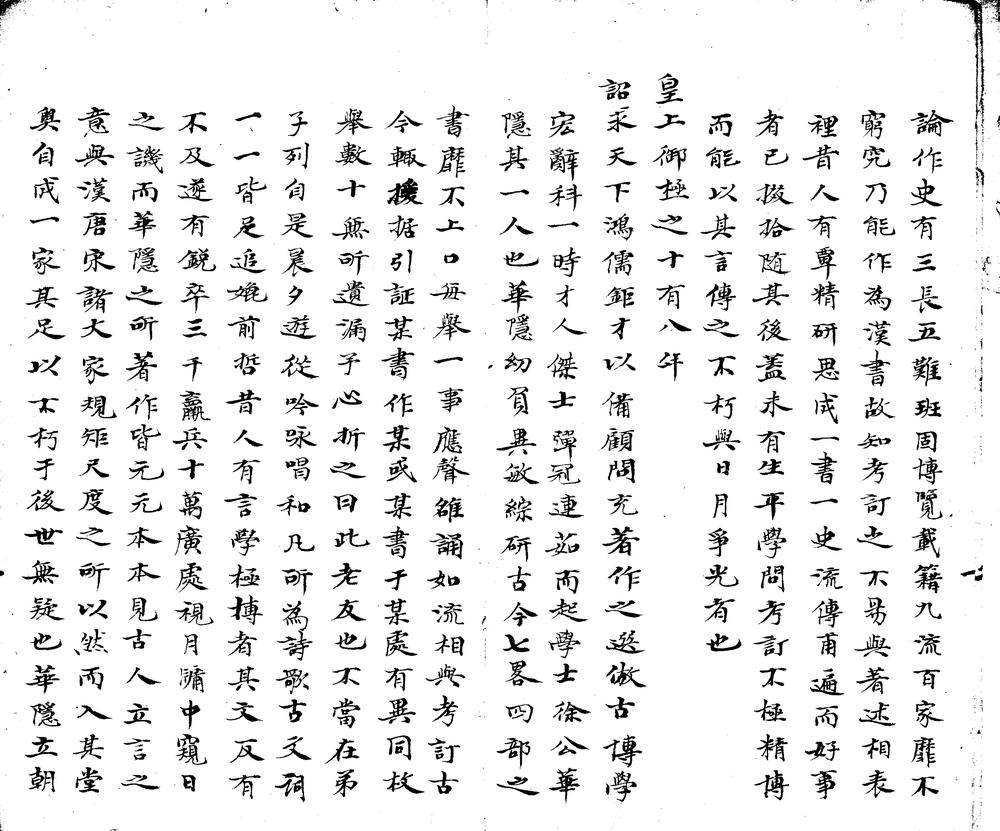 論作史有三長五難班固博覽載籍九流百家靡不
窮究乃能作為漢書故知考訂之不易與著述相表
裡昔人有覃精研思成一書一史流傳甫遍而好事
者已掇拾随其後蓋未有生平學問考訂不極精博
而能以其言傳之不朽與日月爭光者也
皇上御極之十有八年
詔求天下鴻儒鉅才以備顧問充著作之選倣古博學
宏辭科一時才人傑士彈冠連茹而起學士徐公華
隱其一人也華隱幼負異敏綜研古今七畧四部之
書靡不上口每舉一事應聲雒誦如流相與考訂古
今輙援据引証某書作某或某書于某處有異同枚
舉數十無所遺漏予心折之曰此老友也不當在弟
子列自是晨夕遊從吟咏唱和凡所為詩歌古文詞
一一皆足追媲前哲昔人有言學極博者其文反有
不及遂有銳卒三千羸兵十萬廣處視月牖中窺日
之譏而華隱之所著作皆元元本本見古人立言之
意與漢唐宋諸大家規矩尺度之所以然而入其堂
奥自成一家其足以不朽于後世無疑也華隱立朝